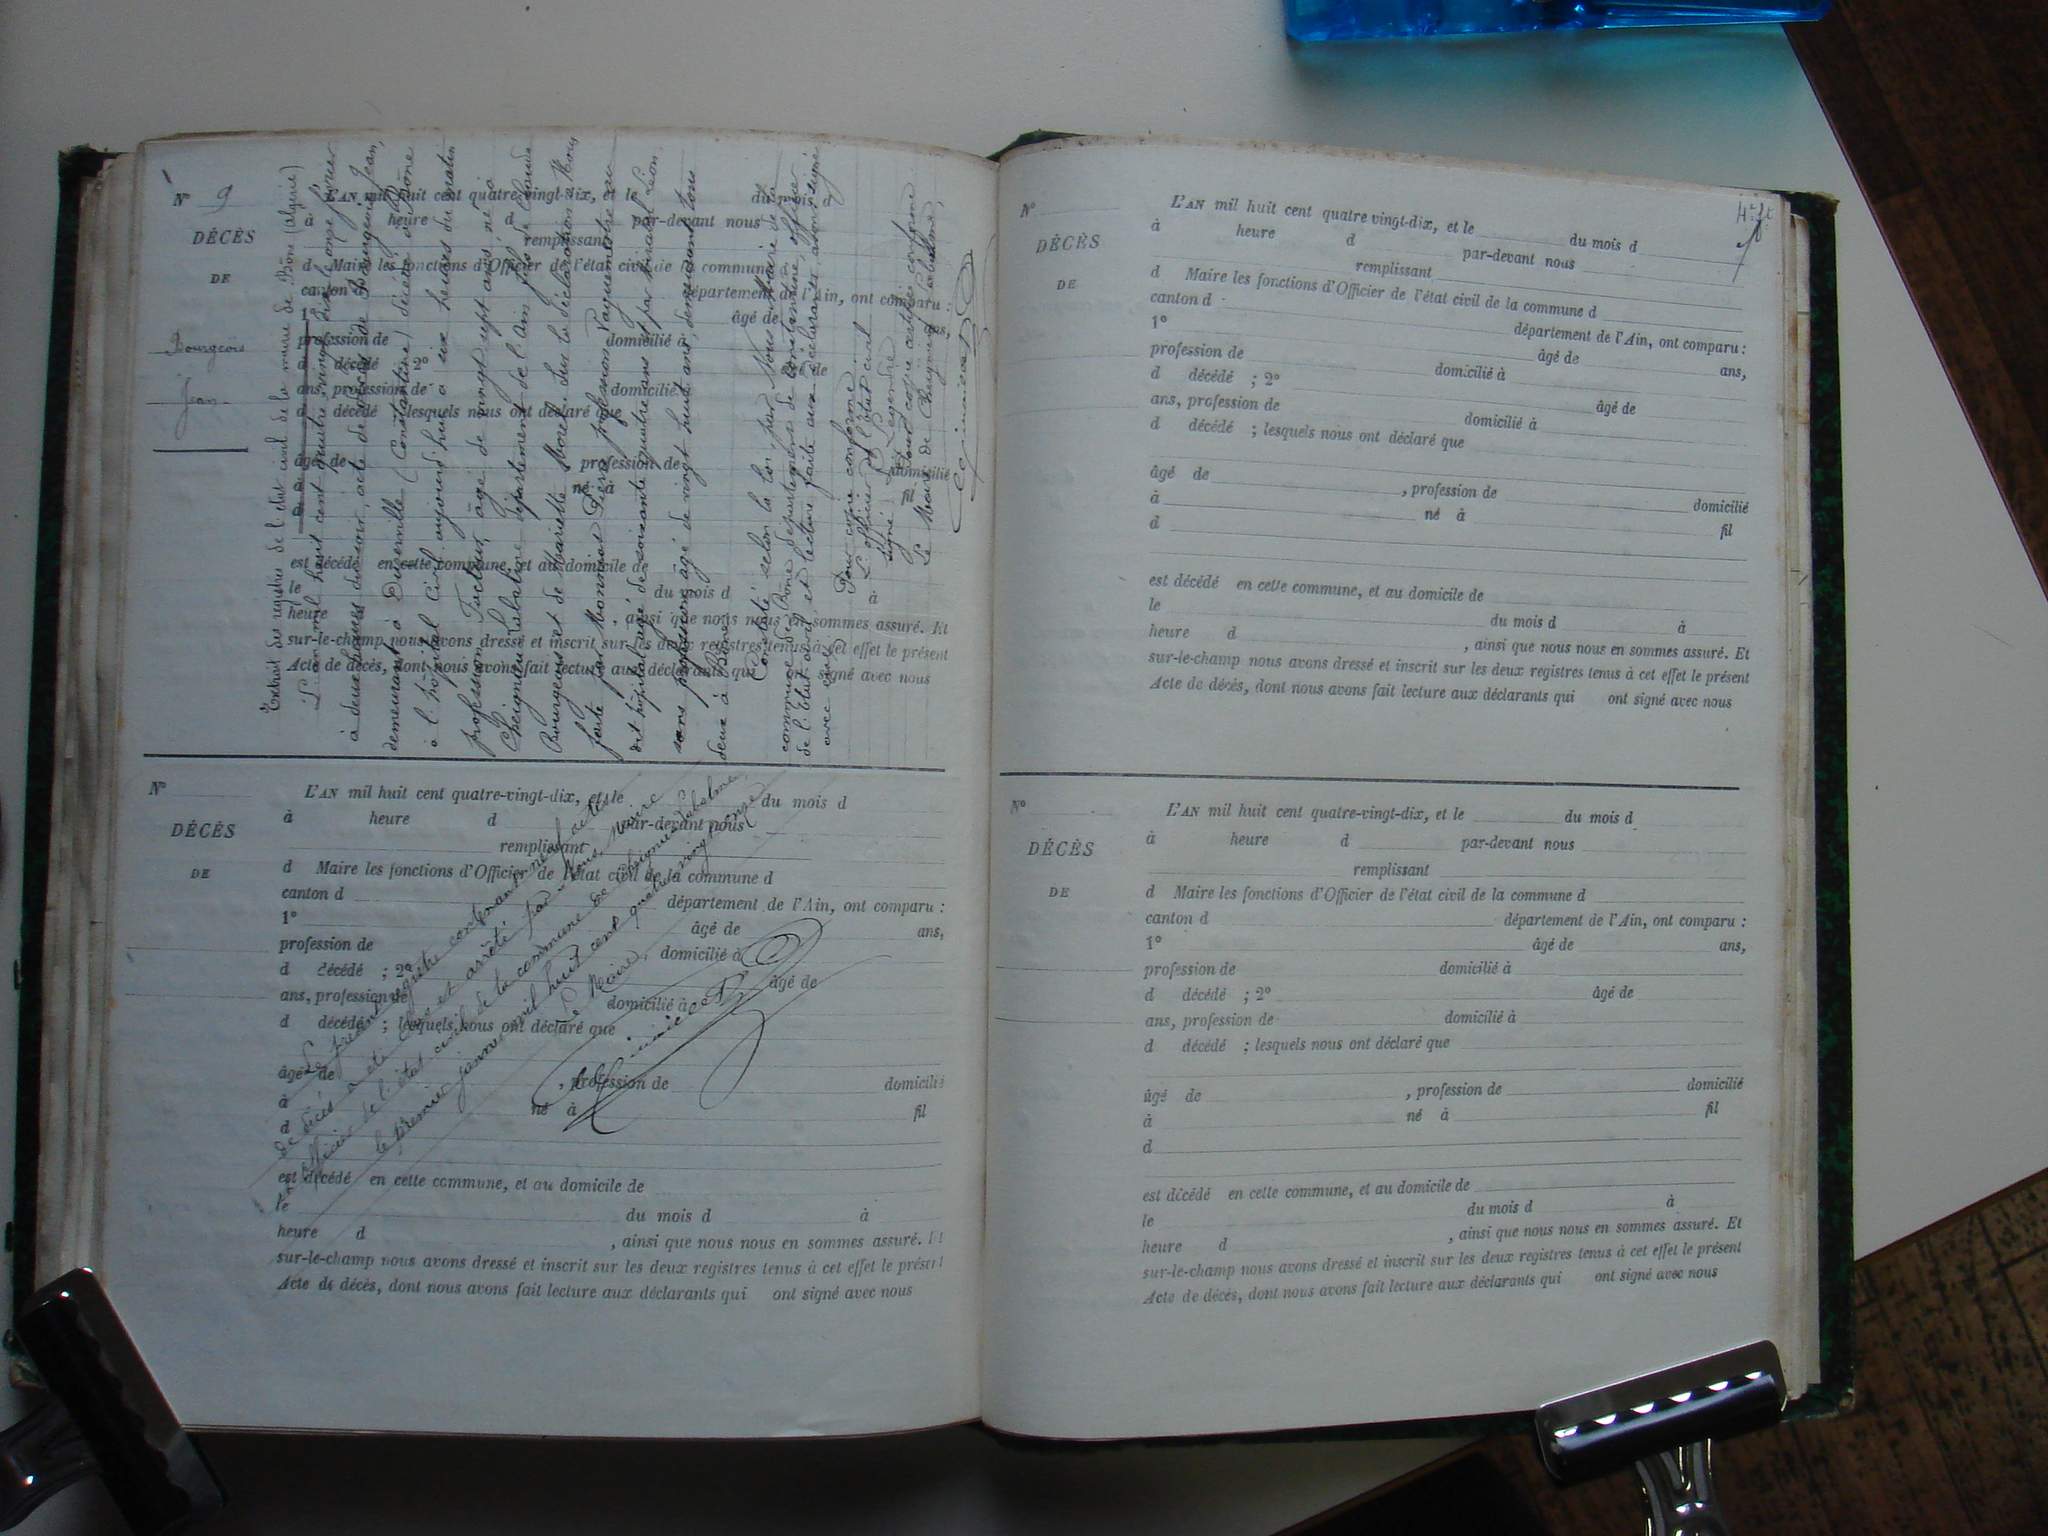 N° 9
DÉCÈS
DE
Bourgeois
Jean
L'AN mil huit cent quatre-vingt-dix, et le du mois d
à heure d par-devant nous
remplissant
d Maire les fonctions d'Officier de l'état civil de la commune d
canton d département de l'Ain, ont comparu :
1° âgé de ans,
profession de domicilié à
d décédé ; 2° âgé de
ans, profession de domicilié à
d décédé ; lesquels nous ont déclaré que
âgé de profession de domicilié
à né à fil
d
est décédé en cette commune, et au domicile de
le du mois d à
heure d , ainsi que nous nous en sommes assuré. Et
sur-le-champ nous avons dressé et inscrit sur les deux registres tenus à cet effet le présent
Acte de décès, dont nous avons fait lecture aux déclarants qui signé avec nous
Extrait des registres de l'état civil de la mairie de Bône (Algérie)
L'an mil huit cent quatre vingt dix le onze février
à deux heures du soir, acte de décès de Bourgeois Jean,
demeurant à Duzerville (Constantine) décédé à Bône
à l'hôpital Civil aujourd'hui à six heures du matin
profession Facteur, âgé de vingt sept ans, né à
Cheignieu Labalme département de l'Ain fils de Claude
Bourgeois et de Mariette Morel. Sur la déclaration à Nous
faite par Monnas Pierre profession
dit hôpital âgé de soixante quatre ans et par Léon
sans profession âgé de vingt huit ans, demeurant tous
deux à Bône.
Constaté selon la loi par Nous Maire de la
commune de Bône département de Constantine, officier
de l'Etat civil, et lecture faite aux déclarants avons signé
avec eux
Pour copie conforme
L'officier de l'état civil
signé : Legendre
Pour copie certifiée conforme
Le Maire de Cheignieu Labalme,
N°
DÉCÈS
DE
L'AN mil huit cent quatre-vingt-dix, et le du mois d
à heure d par-devant nous
remplissant
d Maire les fonctions d'Officier de l'état civil de la commune d
canton d département de l'Ain, ont comparu :
1° âgé de ans,
profession de domicilié à
d décédé ; 2° âgé de
ans, profession de domicilié à
d décédé ; lesquels nous ont déclaré que
âgé de , profession de domicilié
à né à fil
d
est décédé en cette commune, et au domicile de
le du mois d à
heure d , ainsi que nous nous en sommes assuré. Et
sur-le-champ nous avons dressé et inscrit sur les deux registres tenus à cet effet le présent
Acte de décès, dont nous avons fait lecture aux déclarants qui ont signé avec nous
Le présent registre contenant neuf actes
de décès a été clos et arrêté par Nous, Maire
officier de l'état civil de la commune de Cheignieu Labalme,
le premier janvier mil huit cent quatre vingt onze
Le Maire,
N°
DÉCÈS
DE
L'AN mil huit cent quatre vingt-dix, et le du mois d
à heure d par-devant nous
remplissant
d Maire les fonctions d'Officier de l'état civil de la commune d
canton d département de l'Ain, ont comparu :
1° âgé de ans,
profession de domicilié à
d décédé ; 2° âgé de
ans, profession de domicilié à
d décédé ; lesquels nous ont déclaré que
âgé de , profession de domicilié
à né à fil
d
est décédé en cette commune, et au domicile de
le du mois d à
heure d , ainsi que nous nous en sommes assuré. Et
sur-le-champ nous avons dressé et inscrit sur les deux registres tenus à cet effet le présent
Acte de décès, dont nous avons fait lecture aux déclarants qui ont signé avec nous
N°
DÉCÈS
DE
L'AN mil huit cent quatre-vingt-dix, et le du mois d
à heure d par-devant nous
remplissant
d Maire les fonctions d'Officier de l'état civil de la commune d
canton d département de l'Ain, ont comparu :
1° âgé de ans,
profession de domicilié à
d décédé ; 2° âgé de
ans, profession de domicilié à
d décédé ; lesquels nous ont déclaré que
âgé de , profession de domicilié
à né à fil
d
est décédé en cette commune, et au domicile de
le du mois d à
heure d , ainsi que nous nous en sommes assuré. Et
sur-le-champ nous avons dressé et inscrit sur les deux registres tenus à cet effet le présent
Acte de décès, dont nous avons fait lecture aux déclarants qui ont signé avec nous